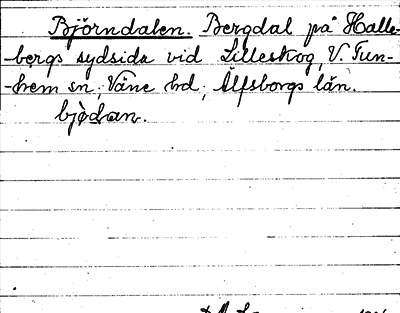 Björndalen. Bergdal på Halle-
-bergs sydsida vid Lilleskog, V. Tun-
-hem sn, Väne hd, Älfsborgs län.
bjǿdan.